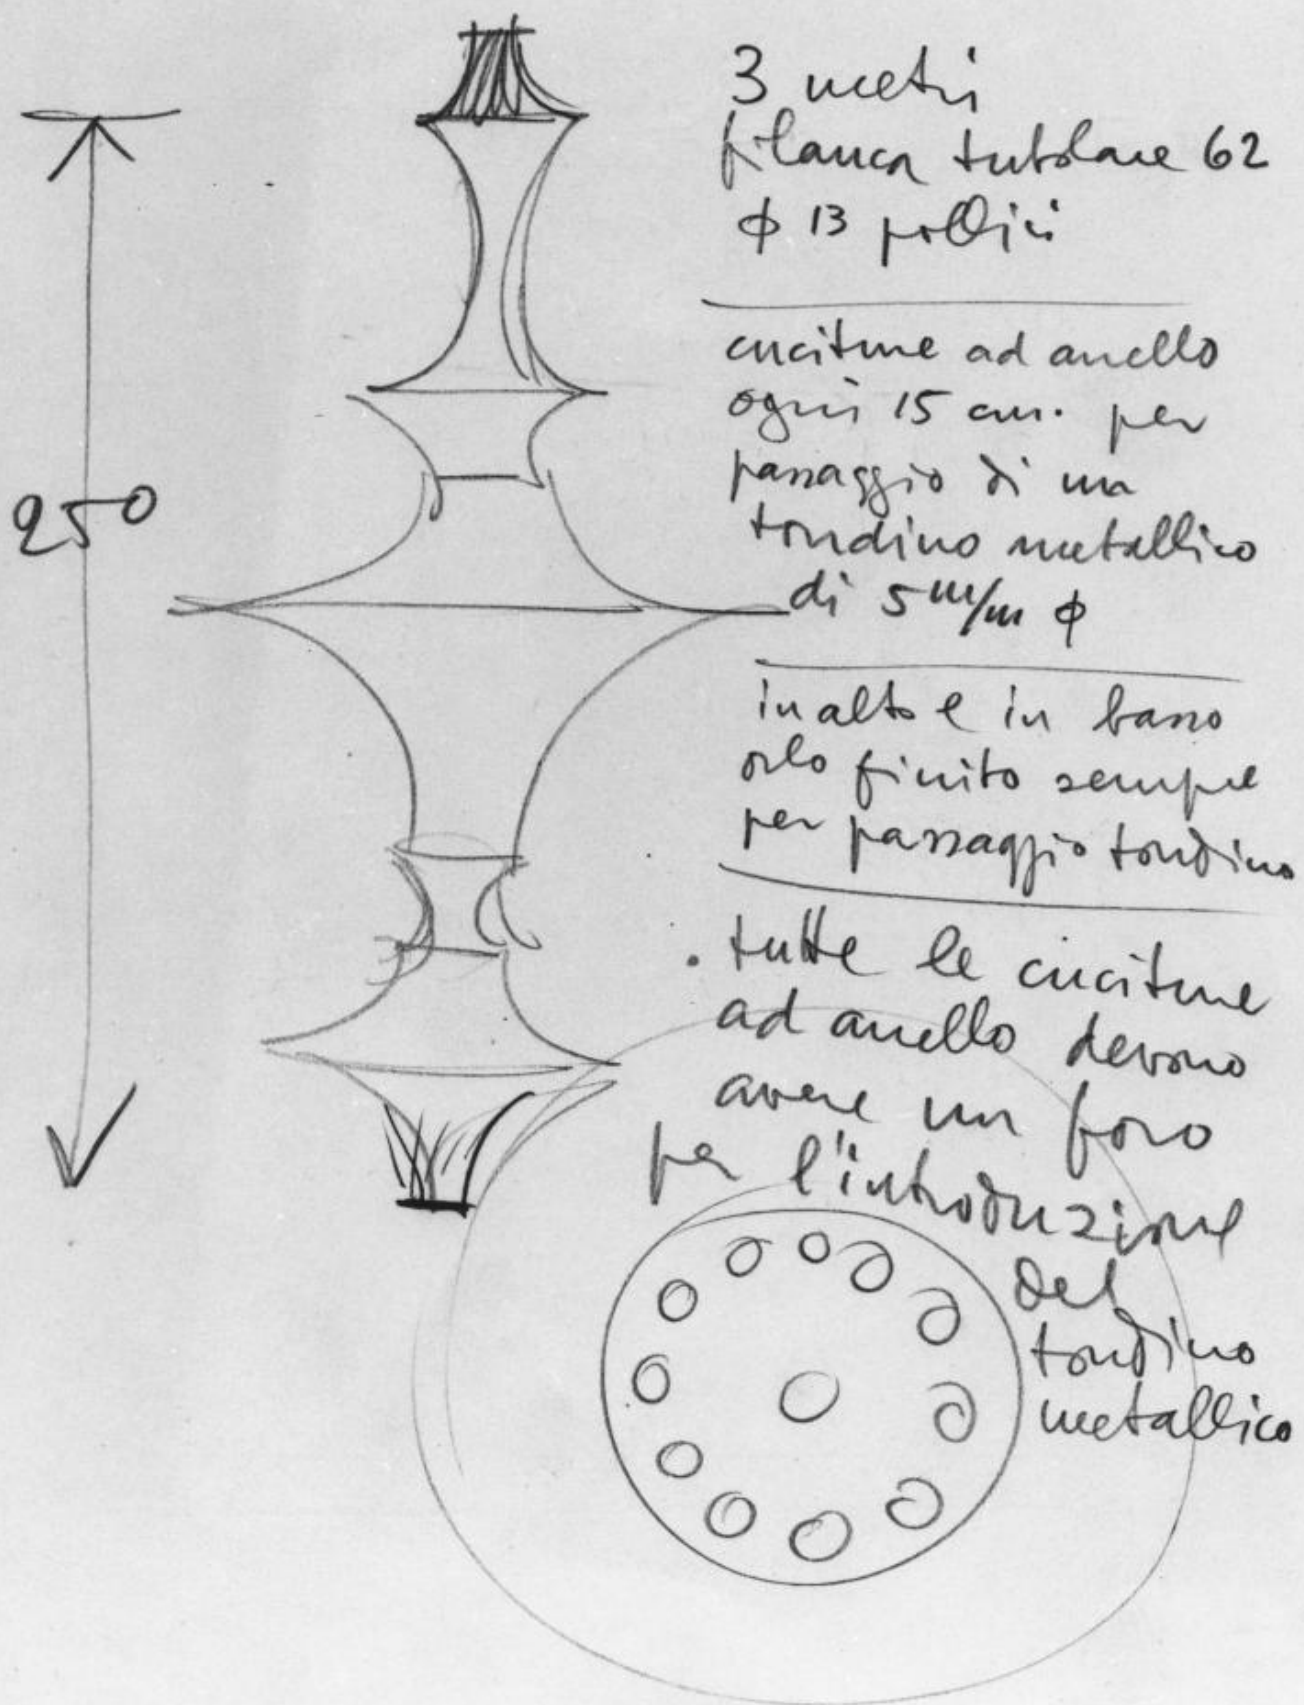 3 metri
filanca tubolare 62
ϕ 13 pollici
cuciture ad anello
ogni 15 cm. per
passaggio di un
tondino metallico
di 5 m/m ϕ
in alto e in basso
orlo finito sempre
per passaggio tondino
. tutte le cuciture
ad anello devono
avere un foro
per l'introduzione
del
tondino
metallico
250